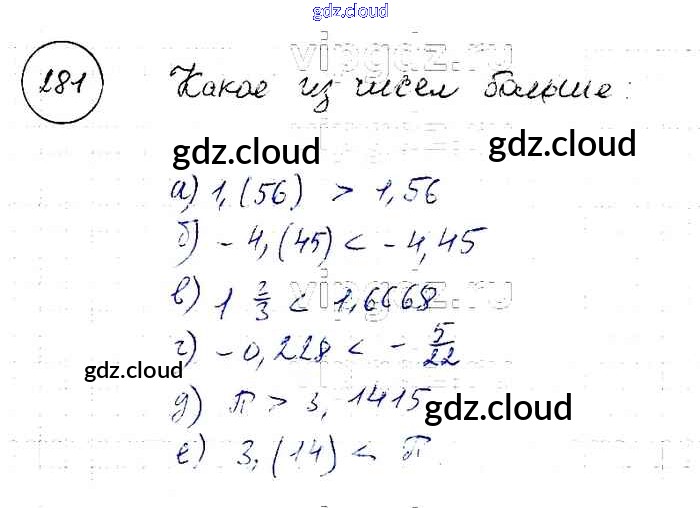 gdz.cloud
vipgdz.ru
281 Какое из чисел больше:
gdz.cloud gdz.cloud
а) 1,(56) > 1,56
б) -4,(45) < -4,45
vipgdz.ru
в) 1 2/3 < 1,6668
г) -0,228 < - 5/22
gdz.cloud
д) π > 3,1415
gdz.cloud
е) 3,(14) < π